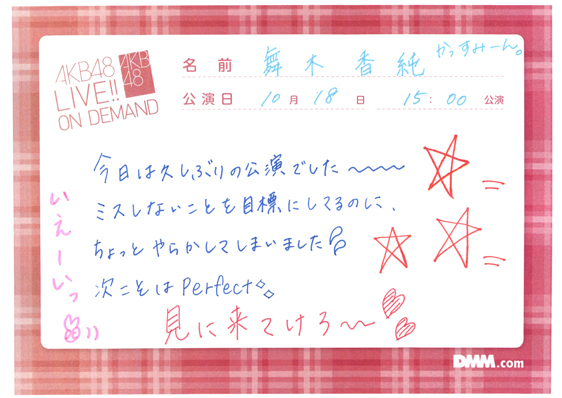 AKB48
LIVE!!
ON DEMAND
AKB
48
名前 舞木香純 かっすみーん。
公演日 10月18日 15:00 公演
今日は久しぶりの公演でした〜〜〜
ミスしないことを目標にしてるのに、
ちょっとやらかしてしまいました
次こそはPerfect
見に来てけろ〜〜
いえーいっ
DMM.com